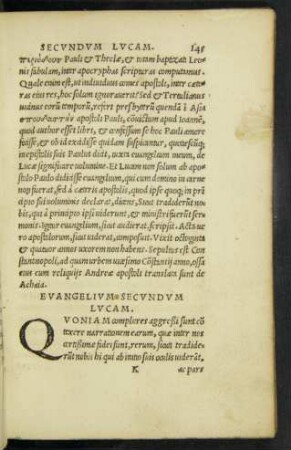 SECVNDVM LVCAM. 145
περιόδους Pauli & Theclæ, & totam baptizati Leo-
nis fabulam, inter apocryphas scripturas computamus.
Quale enim est, ut indiuiduus comes apostoli, inter cæte-
ras eius res, hoc solum ignorauerit? Sed & Tertulianus
uicinus eorũ temporũ, refert presbyterũ quendã ĩ Asia
apostoli Pauli, cõuictum apud Ioannẽ,
quòd author esset libri, & cõfessum se hoc Pauli amore
fecisse, & ob id excidisse quidam suspicantur, quotiescũq;
in epistolis suis Paulus dicit, iuxta euangelium meum, de
Lucæ significare uolumine. Et Lucam non solum ab apo-
stolo Paulo didicisse euangelium, qui cum domino in carne
nõ fuerat, sed à cæteris apostolis, quod ipse quoq; in prĩ
cipio sui uoluminis declarat, dicens, Sicut tradiderũt no-
bis, qui à principio ipsi uiderunt, & ministri fuerũt ser-
monis. Igitur euangelium, sicut audierat, scripsit. Acta ue-
ro apostolorum, sicut uiderat, composuit. Vixit octoginta
& quatuor annos uxorem non habens. Sepultus est Con-
stantinopoli, ad quam urbem uicesimo Cõstantij anno, ossa
eius cum reliquijs Andreæ apostoli translata sunt de
Achaia.
EVANGELIVM SECVNDVM
LVCAM.
QVONIAM complures aggressi sunt cõ
texere narrationem earum, quæ inter nos
certissimæ fidei sunt, rerum, sicut tradide-
rũt nobis hi qui ab initio suis oculis uiderũt,
K ac pars